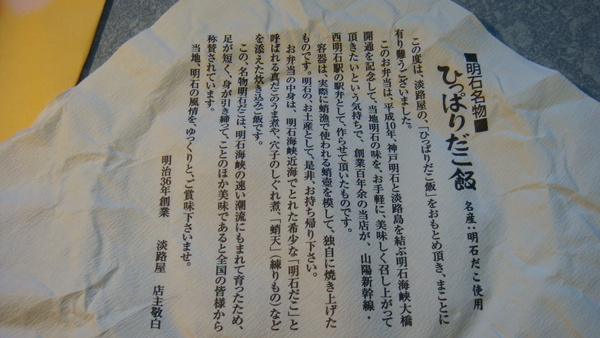 ■明石名物■
ひっぱりだこ飯
名産:明石だこ使用
この度は、淡路屋の、「ひっぱりだこ飯」をおもとめ頂き、まことに
有り難うございました。
このお弁当は、平成10年、神戸明石と淡路島を結ぶ明石海峡大橋
開通を記念して、当地明石の味を、お手軽に、美味しく召し上がって
頂きたいという気持ちで、創業百年余の当店が、山陽新幹線・
西明石駅の駅弁として、作らせて頂いたものです。
容器は、実際に蛸漁で使われる蛸壺を模して、独自に焼き上げた
ものです。明石の、お土産として、是非、お持ち帰り下さい。
お弁当の中身は、明石海峡近海でとれた希少な「明石だこ」と
呼ばれる真だこのうま煮や、穴子のしぐれ煮、「蛸天」(練りもの)など
を添えた炊き込みご飯です。
この、名物明石だこは、明石海峡の速い潮流にもまれて育ったため、
足が短く、身が引き締って、ことのほか美味であると全国の皆様から
称賛されています。
当地、明石の風情を、ゆっくりと、ご賞味下さいませ。
明治36年創業 淡路屋 店主敬白